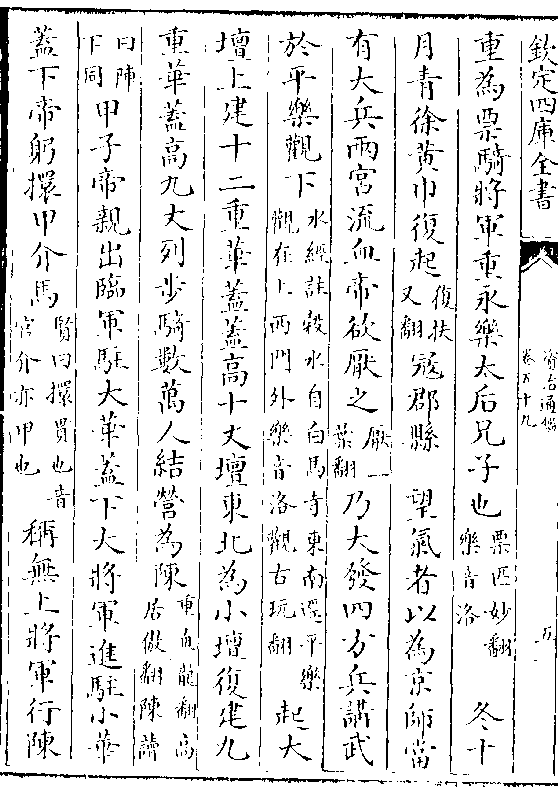 欽定四庫全書
資治通鑑
卷五十九
五
重為票騎將軍重永樂太后兄子也票匹妙翻樂音洛冬十
月青徐黃巾復起復扶又翻寇郡縣 望氣者以為京師當
有大兵兩宮流血帝欲厭之厭一葉翻乃大發四方兵講武
於平樂觀下水經註穀水自白馬寺東南逕平樂觀在上西門外樂音洛觀古玩翻起大
壇上建十二重華蓋蓋高十丈壇東北為小壇復建九
重華蓋高九丈列步騎數萬人結營為陳重直龍翻高居傲翻陳讀
曰陣下同甲子帝親出臨軍駐大華蓋下大將軍進駐小華
蓋下帝躬擐甲介馬賢曰擐貫也音宦介亦甲也稱無上將軍行陳